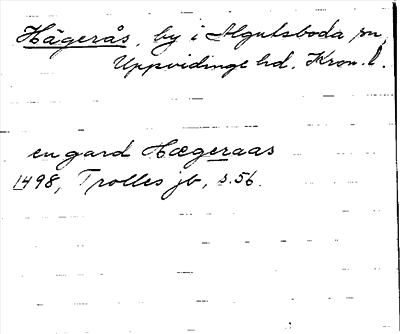 Hägerås, by i Algutsboda sn,
Uppvidinge hd. Kron. l.
en gard Hægeraas
1498, Trolles jb, s. 56.